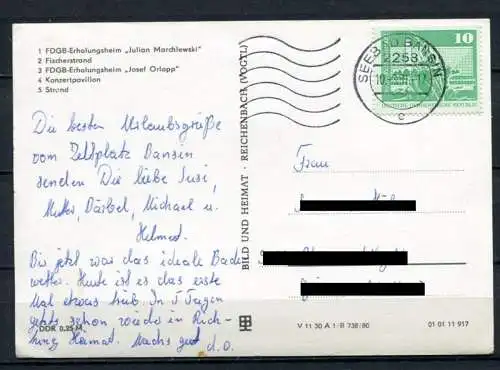 1 FDGB-Erholungsheim „Julian Marchlewski"
2 Fischerstrand
3 FDGB-Erholungsheim „Josef Orlopp"
4 Konzertpavillon
5 Strand
Die besten Urlaubsgrüße
vom Zeltplatz Bansin
senden Dir liebe Susi,
Mutter, Bärbel, Michael u.
Helmut.
Bis jetzt war das ideale Bade
wetter. Heute ist es das erste
Mal etwas trüb. In 5 Tagen
geht's schon wieder in Rich-
tung Heimat. Machs gut
d.o.
DDR 0,25 M
BILD UND HEIMAT · REICHENBACH (VOGTL)
V 11 30 A 1/B 738/80
01 01 11 917
SEEBAD BANSIN
2253
c
10
DEUTSCHE DEMOKRATISCHE REPUBLIK
Frau